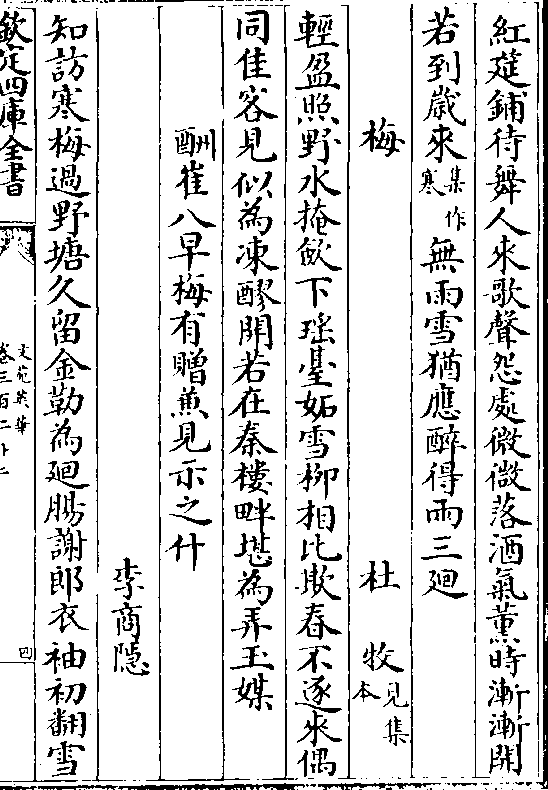 紅筵鋪待舞人來歌聲怨處微微落酒氣薰時漸漸開
若到歲來集作寒無雨雪猶應醉得兩三廻
梅　杜牧見集本
輕盈照野水掩斂下瑶臺妬雪柳相比欺春不逐來偶
同佳客見似為凍醪開若在秦樓畔堪為弄玉媒
酬崔八早梅有贈兼見示之什
李商隱
知訪寒梅過野塘久留金勒為廻腸謝郎衣袖初翻雪
欽定四庫全書
文苑英華
卷三百二十二
四